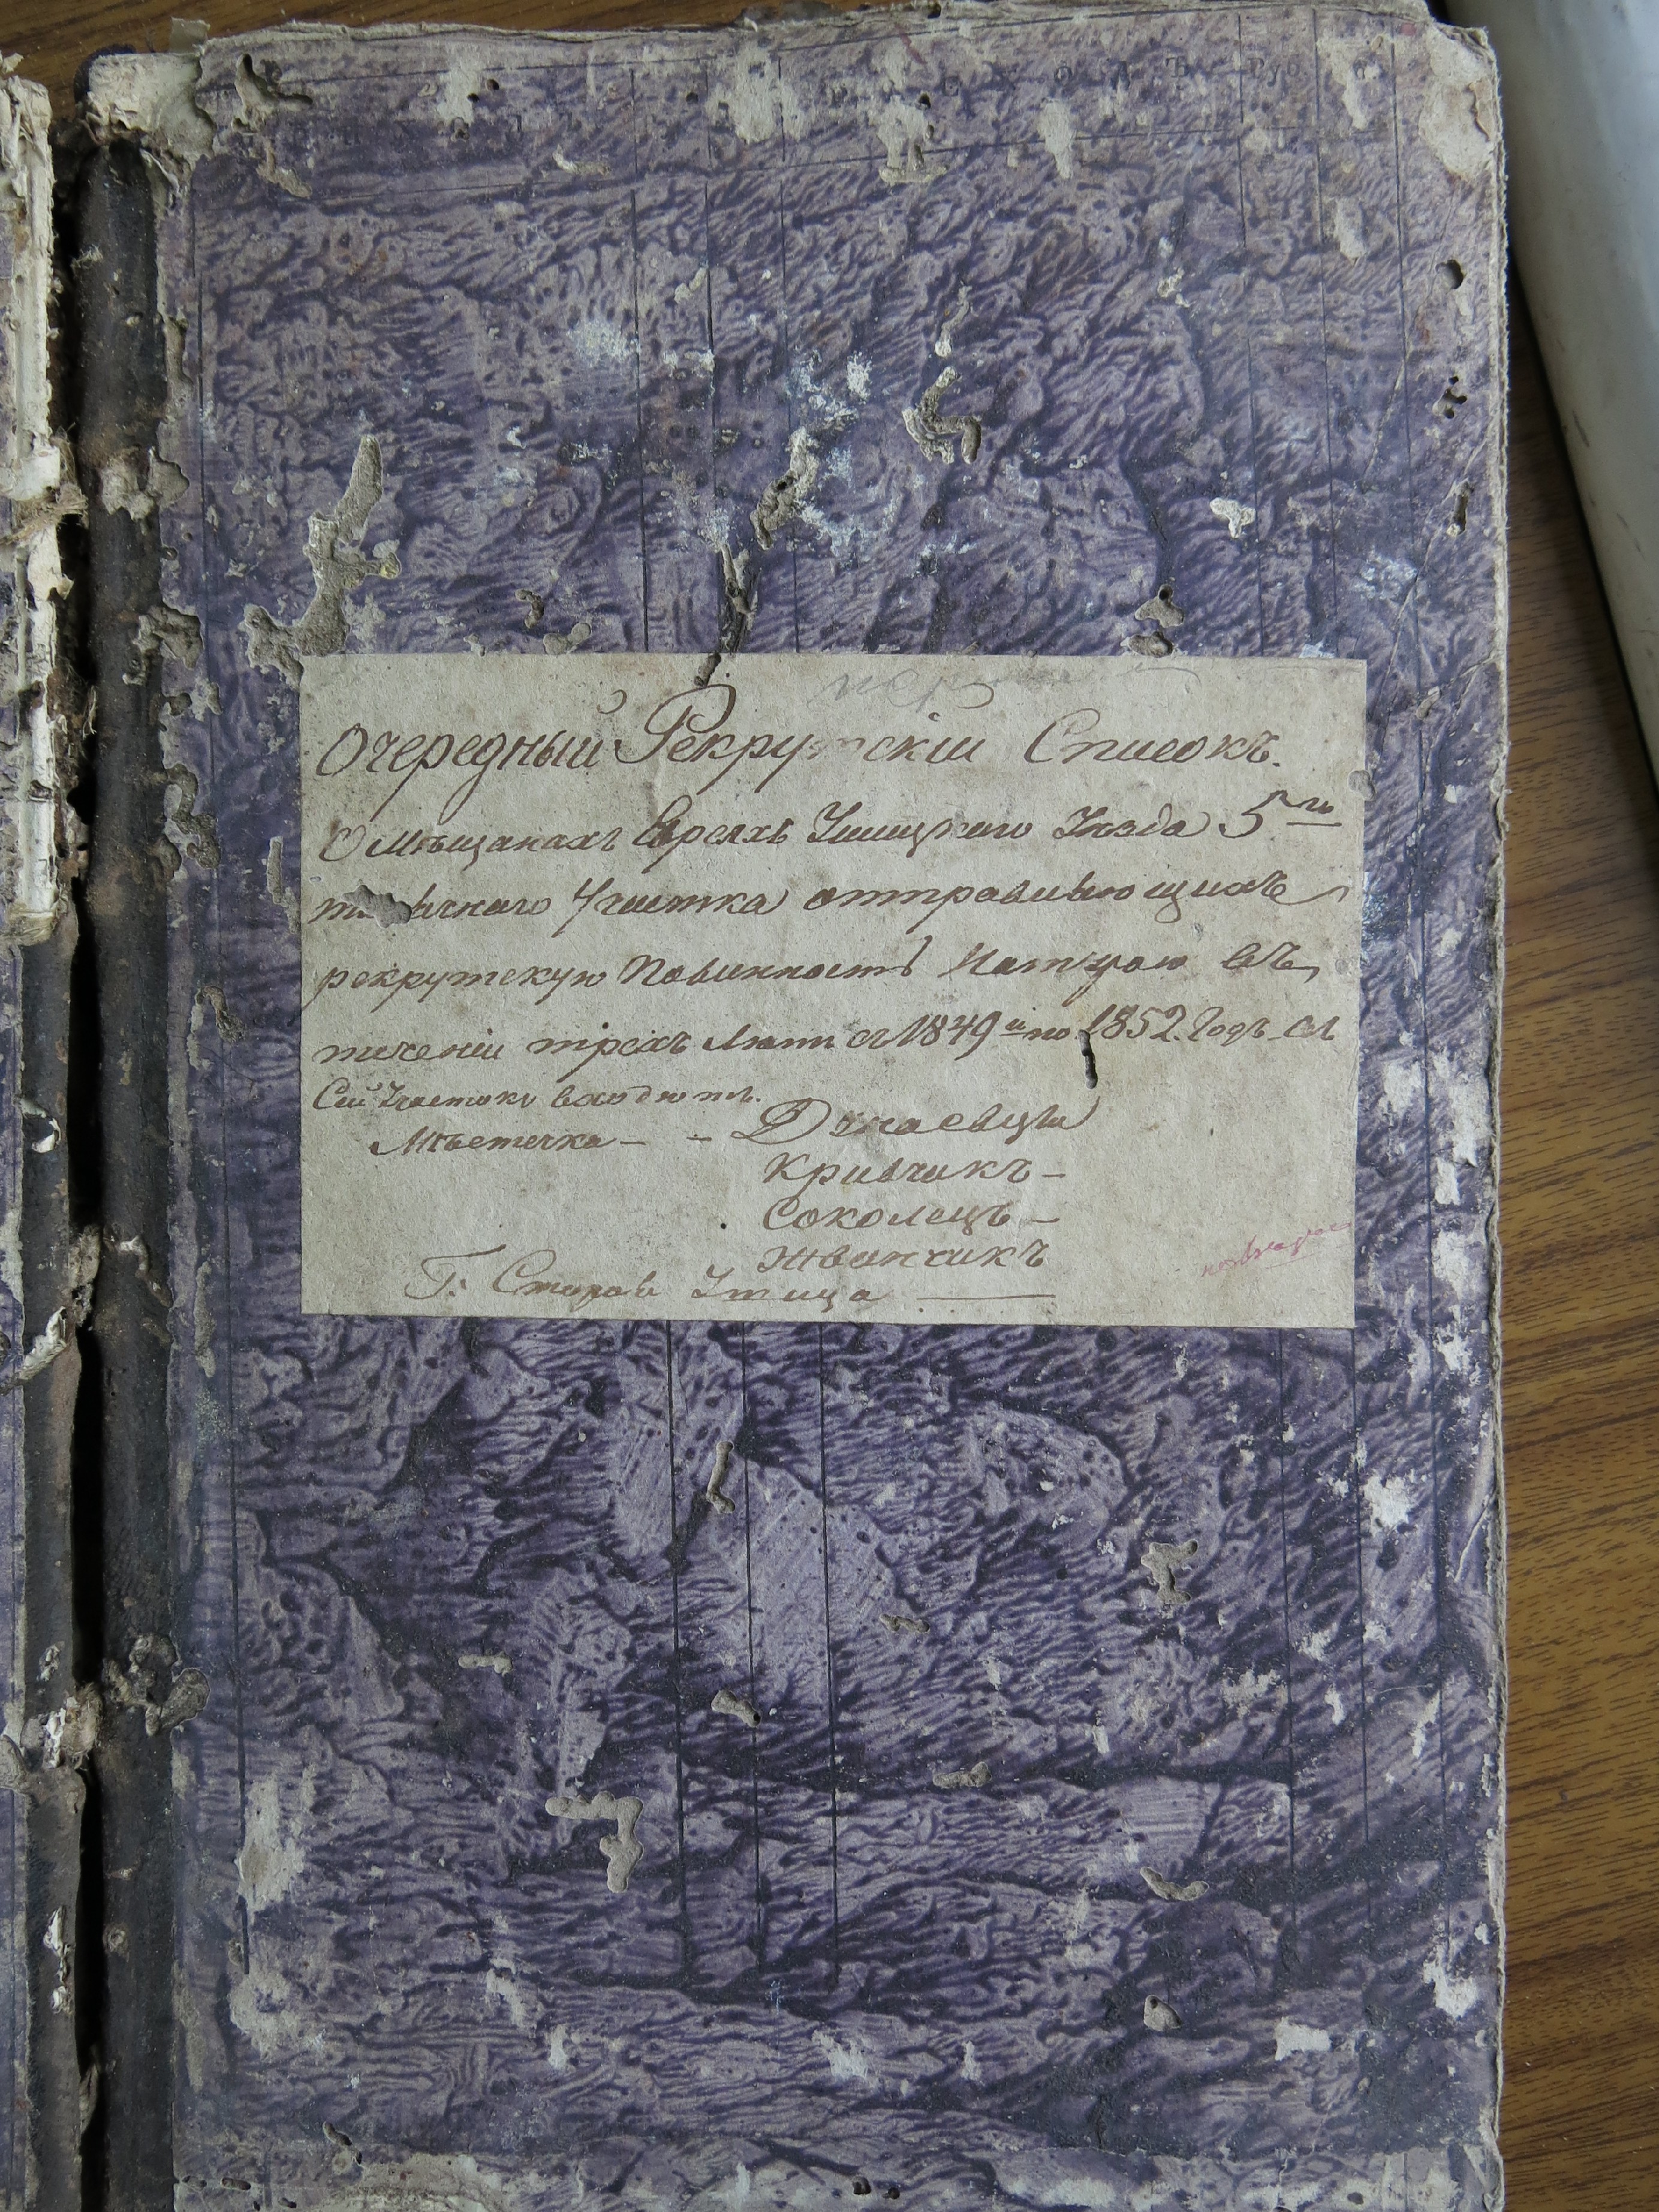 Очередный Рекрутскій Списокъ.
О Мѣщанахъ Евреяхъ Ушицкаго Уѣзда 5го
Участка отправляющихъ
рекрутскую Повинность Натурою въ
теченіи трехъ Лѣтъ съ 1849й по 1852. Годъ въ
Сей Участокъ входютъ.
Мѣстечка - - Дунаевцы
Кривчикъ -
Соколецъ -
Жванчикъ
Г. Старая Ушица